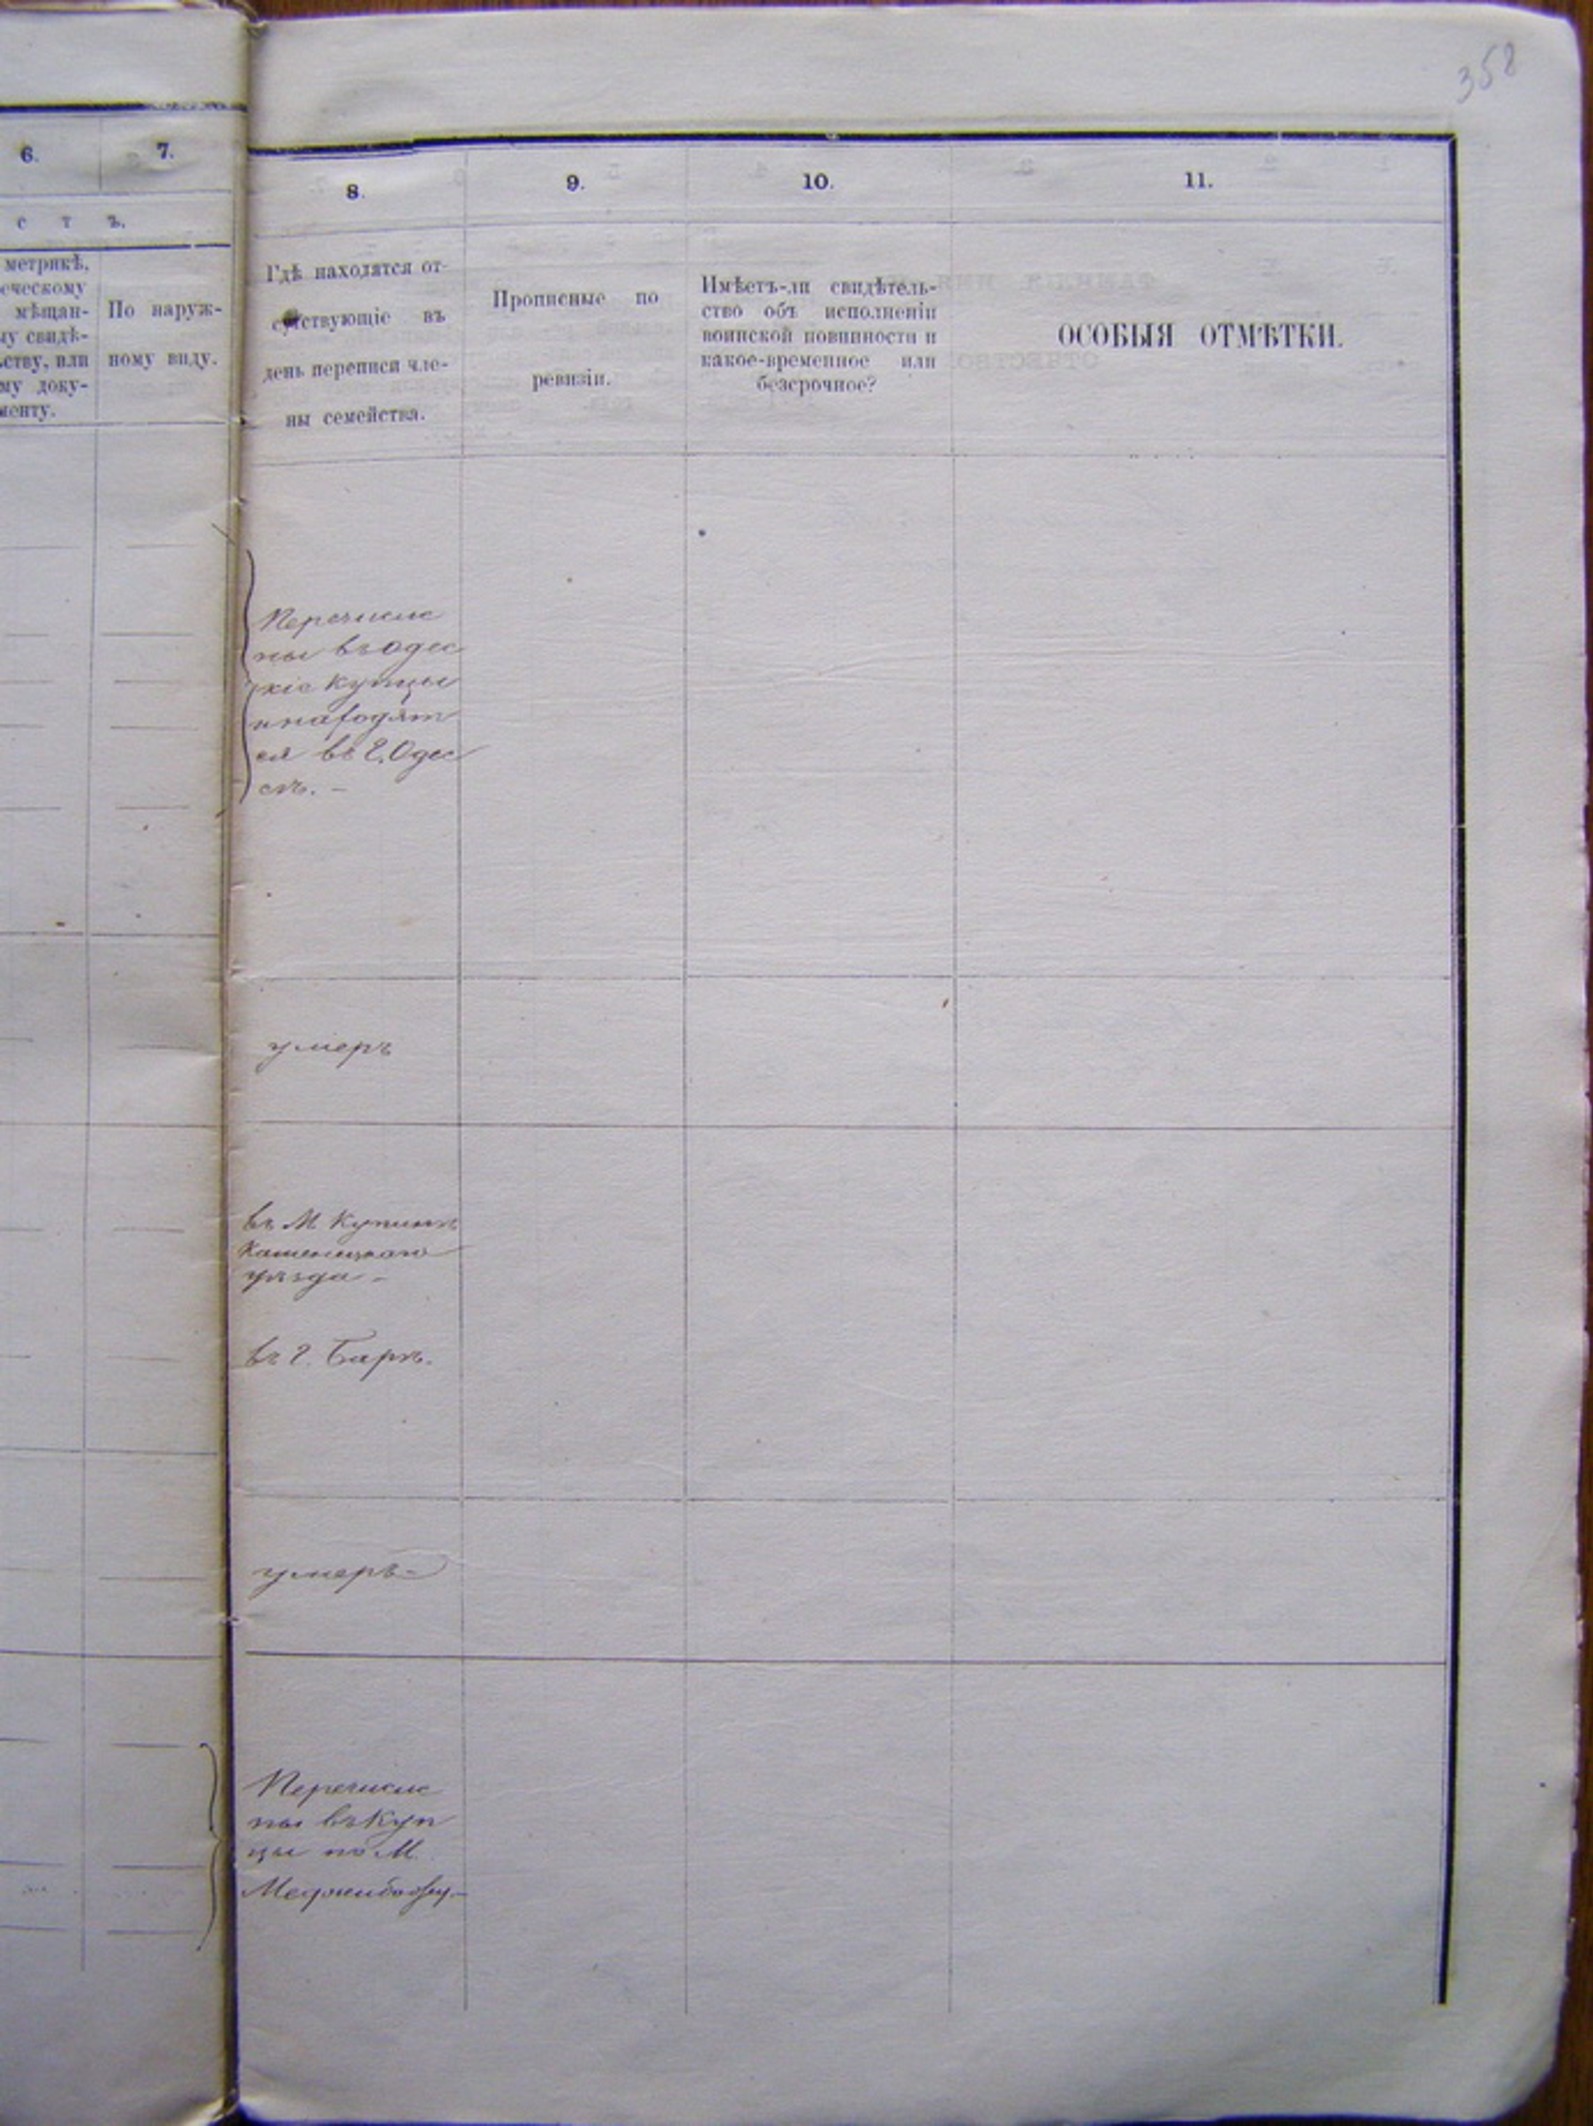 358
6.
7.
8.
9.
10.
11.
с т ъ.
метрикѣ,
еческому
мѣщан-
у свидѣ-
ству, или
му доку-
менту.
По наруж-
ному виду.
Гдѣ находятся от-
сутствующіе въ
день переписи чле-
ны семейства.
Прописные по
ревизіи.
Имѣетъ-ли свидѣтель-
ство объ исполненіи
воинской повинности и
какое-временное или
безсрочное?
ОСОБЫЯ ОТМѢТКИ.
Перечисле
ны въ одес
скіе купцы
и находят
ся въ г. Одес
сѣ. –
умеръ
въ М. Купинѣ
Каменецкаго
уѣзда –
въ г. Барѣ.
умеръ –
Перечисле
ны въ куп
цы по М.
Меджибожу –